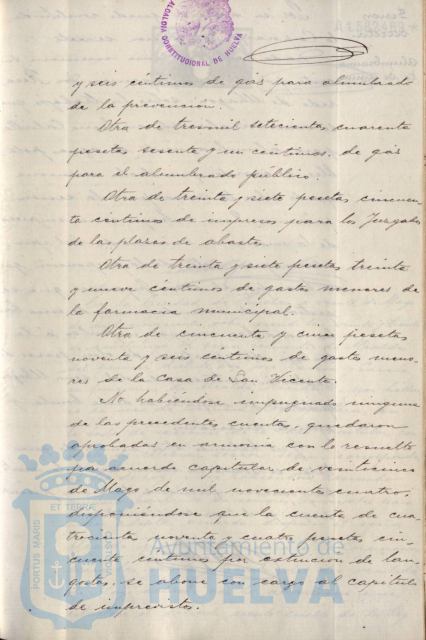 ALCALDIA CONSTITUCIONAL DE HUELVA
y seis céntimos de gás para alumbrado
de la prevención.
Otra de tresmil setecientas cuarenta
pesetas sesenta y un céntimos, de gás
para el alumbrado público.
Otra de treinta y siete pesetas cincuen
ta céntimos de impresos para los Juzgados
de las plazas de abastos.
Otra de treinta y siete pesetas treinta
y nueve céntimos de gastos menores de
la farmacia municipal.
Otra de cincuenta y cinco pesetas
noventa y seis céntimos de gastos meno-
res de la Casa de San Vicente.
No habiéndose impugnado ninguna
de las precedentes cuentas, quedaron
aprobadas en armonía con lo resuelto
por acuerdo capitular de veinticinco
de Mayo de mil novecientos cuatro,
disponiéndose que la cuenta de cua-
trocientas noventa y cuatro pesetas cin-
cuenta céntimos por extinción de lan-
gosta, se abone con cargo al capítulo
de imprevistos.
PORTUS MARIS ET TERRE CUSTODIA
Ayuntamiento de
HUELVA